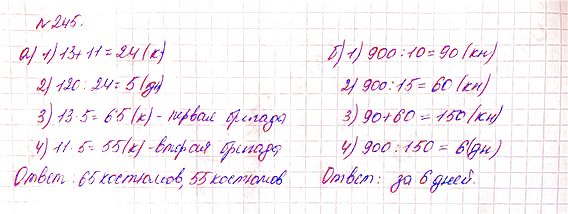 №245.
а) 1) 13+11=24 (к)
2) 120:24=5 (дн)
3) 13·5=65 (к) - первая бригада
4) 11·5=55 (к) - вторая бригада
Ответ: 65 костюмов, 55 костюмов
б) 1) 900:10=90 (кн)
2) 900:15=60 (кн)
3) 90+60=150 (кн)
4) 900:150=6 (дн)
Ответ: за 6 дней.